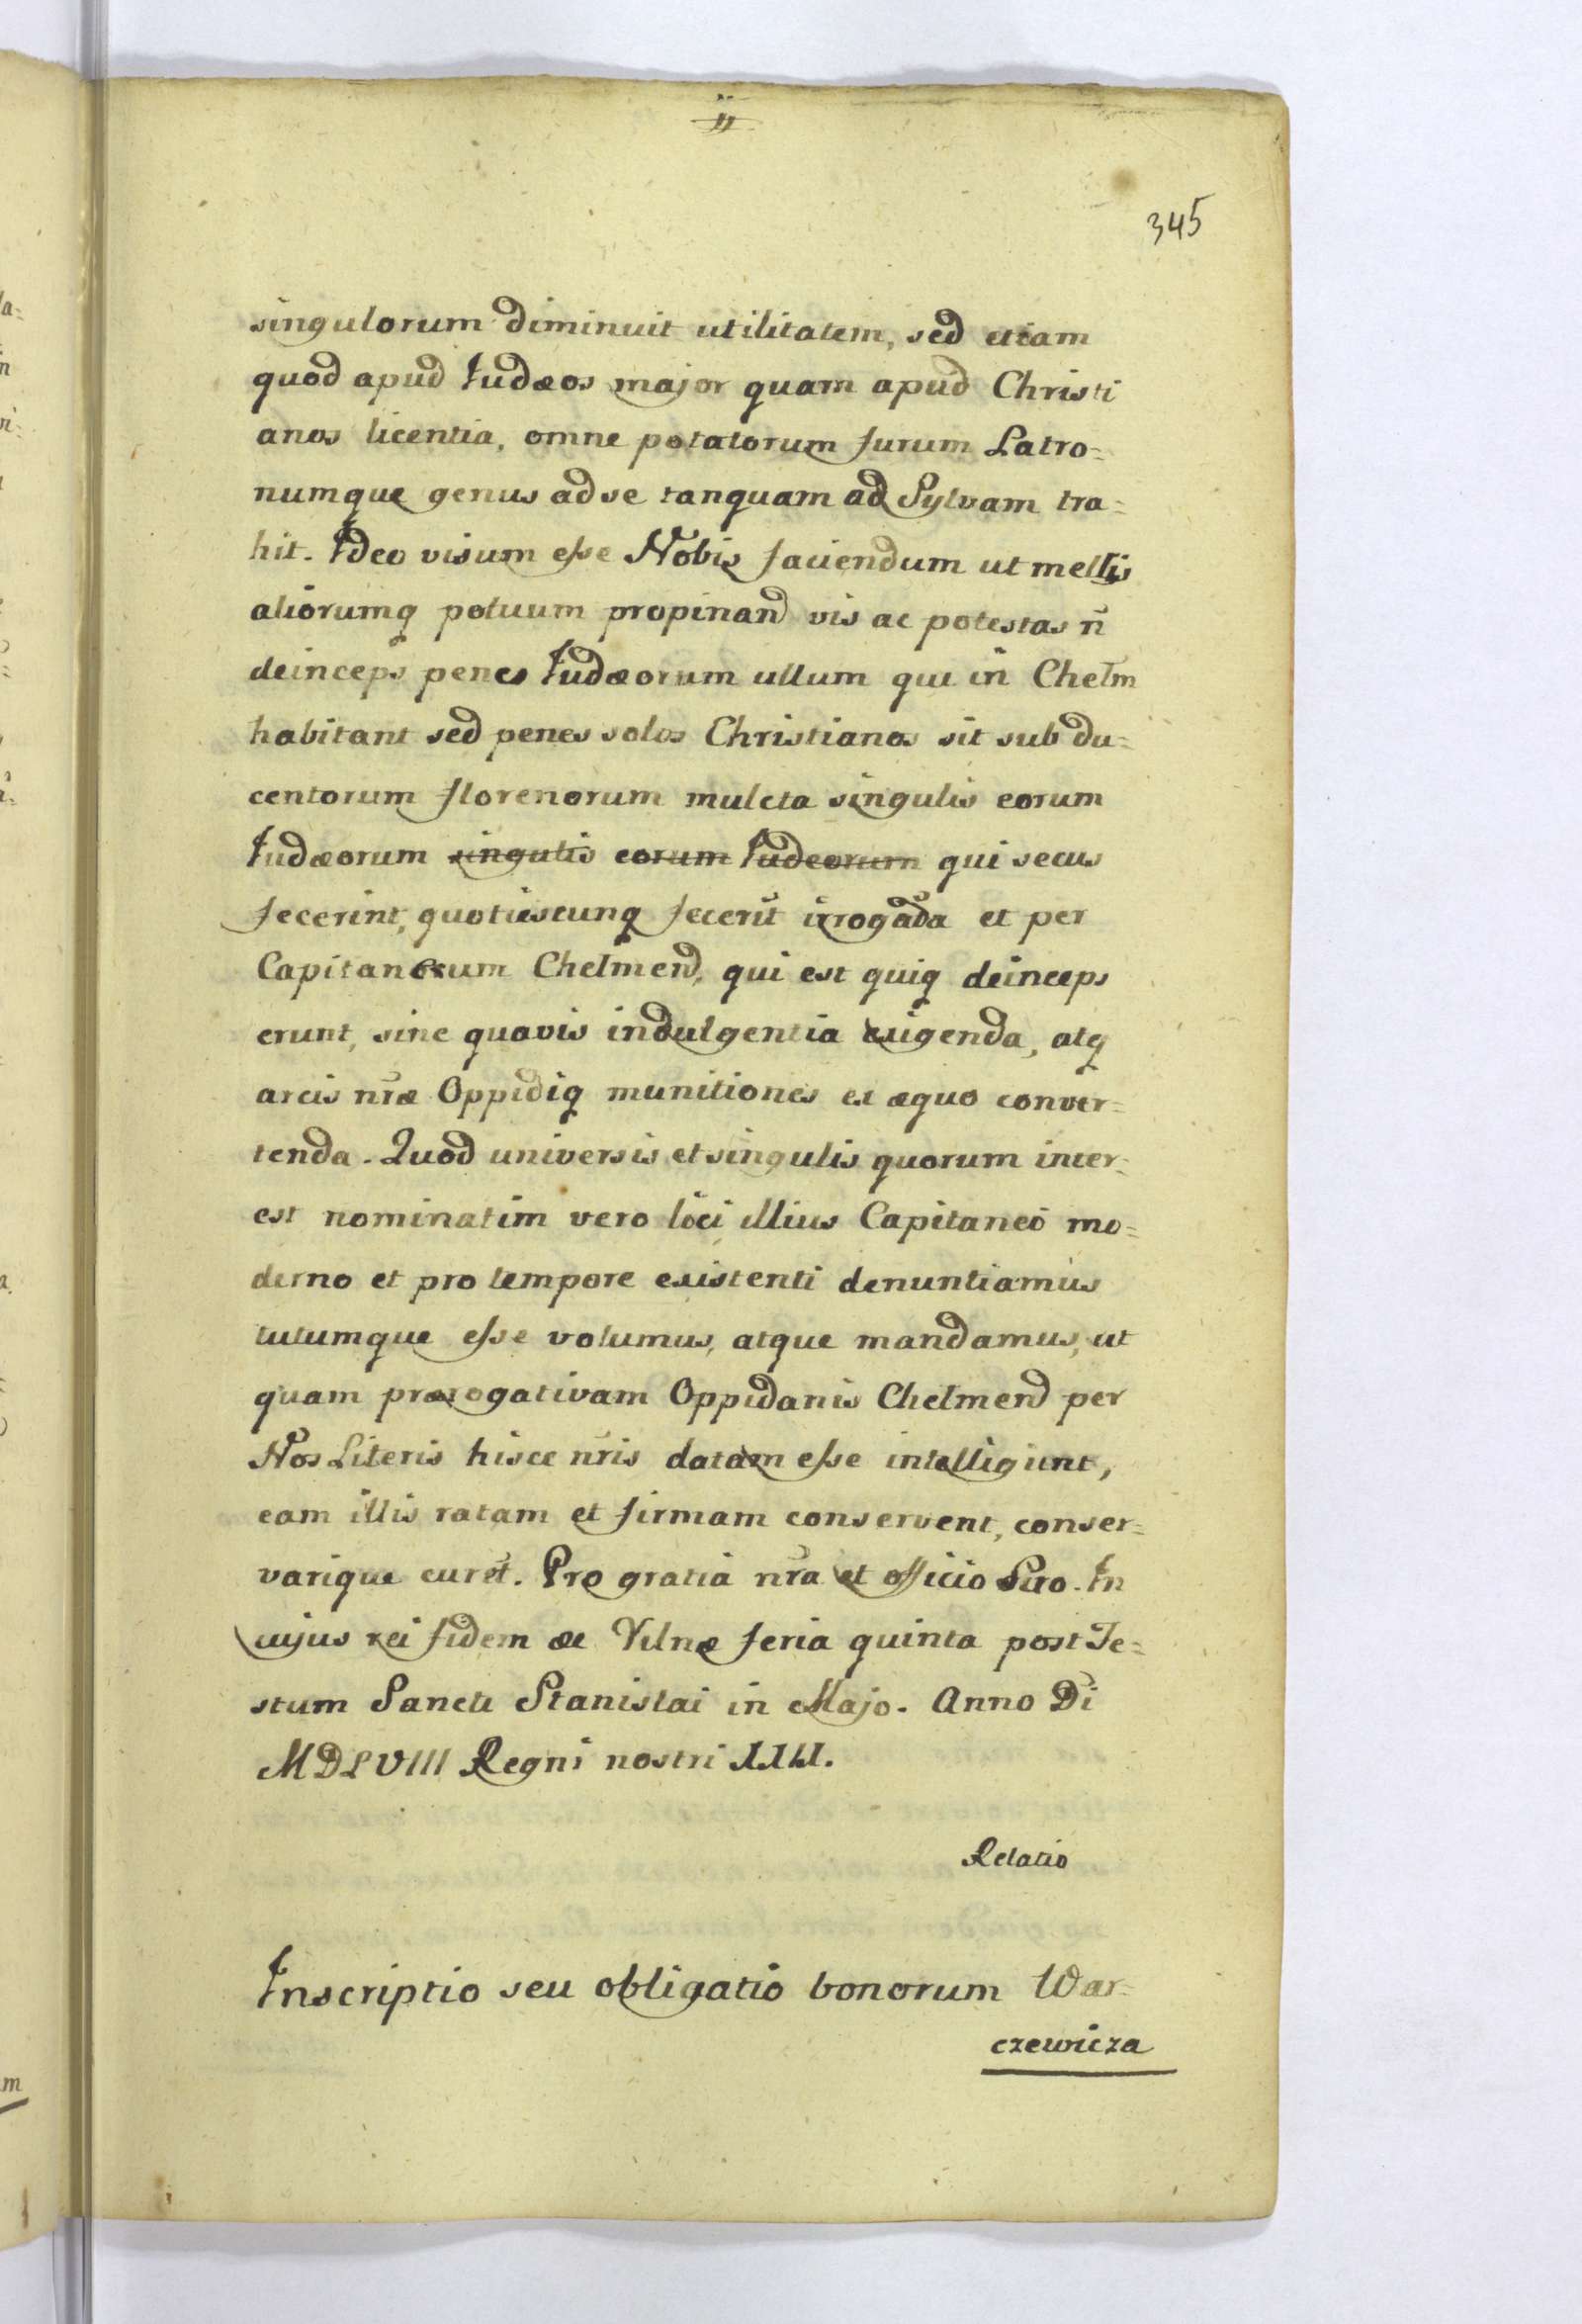 345
singulorum diminuit utilitatem, sed etiam
quod apud Iudæos major quam apud Christi
anos licentia, omne potatorum furum Latro=
numque genus ad se tanquam ad Sylvam tra=
hit. Ideo visum esse Nobis faciendum ut mellis
aliorumq potuum propinand vis ac potestas n̄
deinceps penes Iudæorum ullum qui in Chelm
habitant sed penes solos Christianos sit sub du=
centorum florenorum mulcta singulis eorum
Iudæorum singulis eorum Iudeorum qui secus
fecerint, quotiescunq fecerit irrogāda et per
Capitaneum Chelmend, qui est quiq deinceps
erunt, sine quavis indulgentia exigenda, atq
arcis nr̃æ Oppidiq munitiones ex æquo conver=
tenda. Quod universis et singulis quorum inter=
est nominatim vero loci illius Capitaneo mo=
derno et pro tempore existenti denuntiamus
tutumque esse volumus, atque mandamus, ut
quam prærogativam Oppidanis Chelmend per
Nos Literis hisce nr̃is datam esse intelligunt,
eam illis ratam et firmam conservent, conser=
varique curẽt. Pro gratia nr̃a et officio Suo. In
cujus rei fidem &c Vilnæ feria quinta post Fe=
stum Sancti Stanislai in Majo. Anno Di
MDLVIII Regni nostri
Relatio
Inscriptio seu obligatio bonorum War=
czewicza